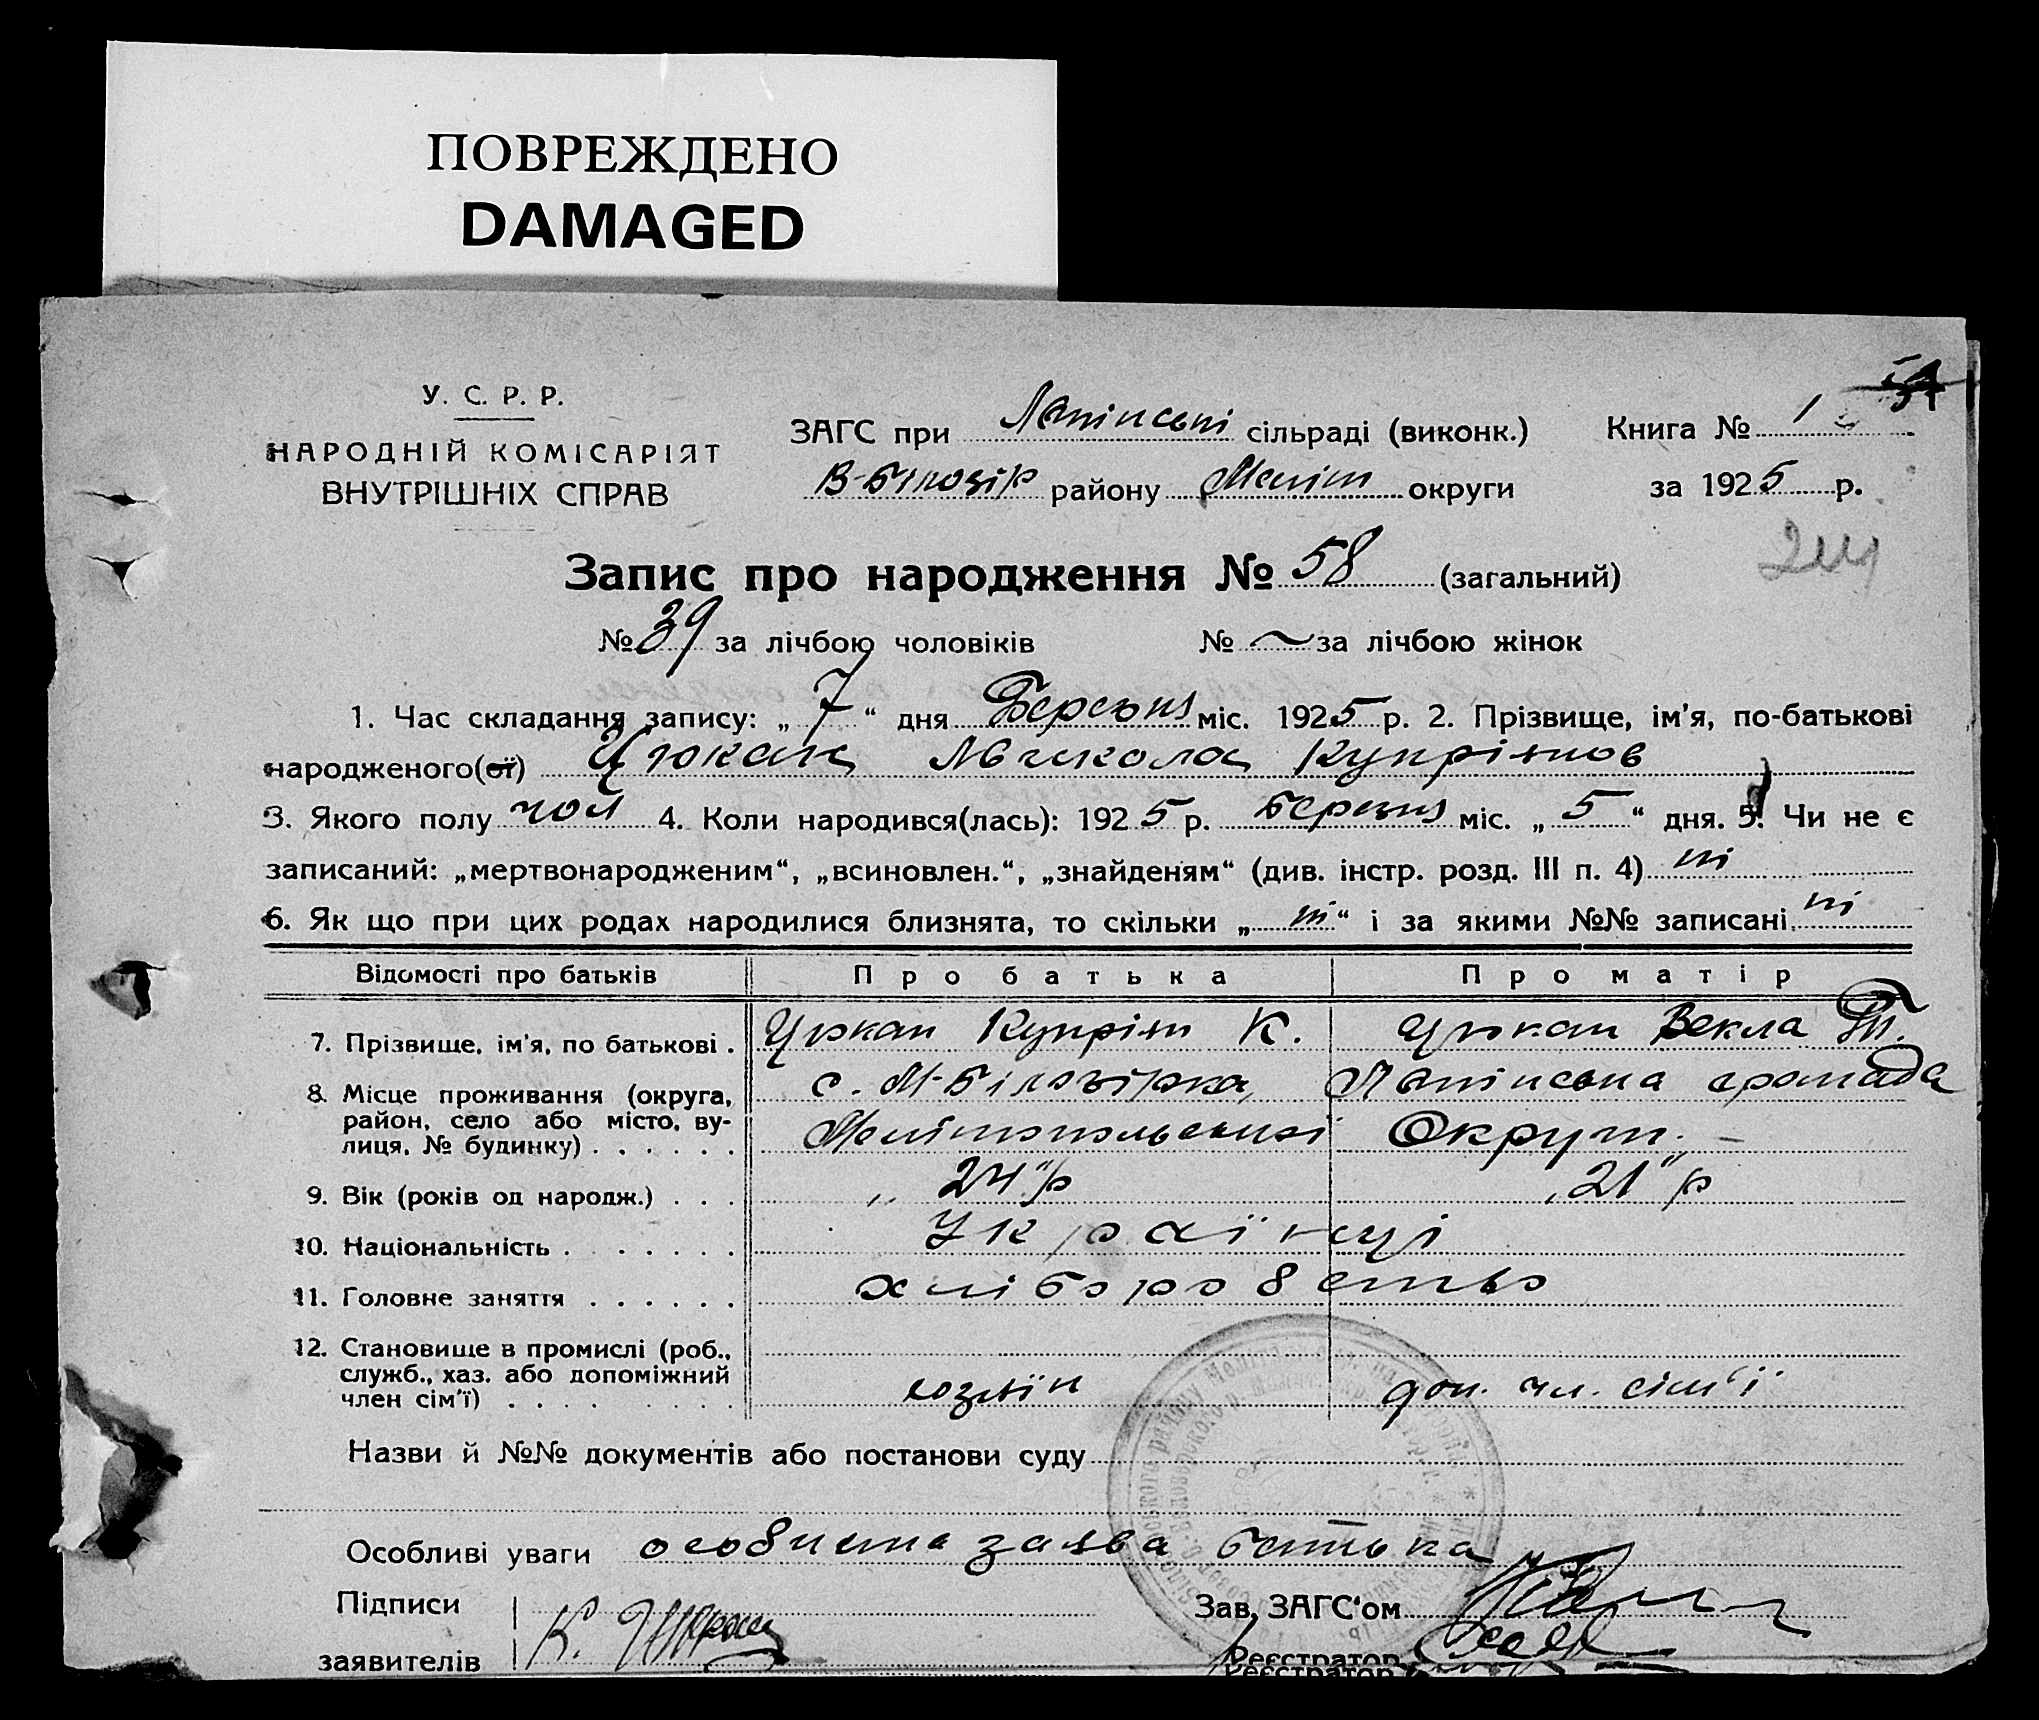 ПОВРЕЖДЕНО
DAMAGED
У. С. Р. Р.
НАРОДНІЙ КОМІСАРІЯТ
ВНУТРІШНІХ СПРАВ
ЗАГС при сільраді (виконк.)
В-Білозір району Меліт округи
Книга № 1
за 1925 р.
Запис про народження № 58 (загальний)
№ 39 за лічбою чоловіків № за лічбою жінок
1. Час складання запису: „ 7 “ дня міс. 1925 р. 2. Прізвище, ім’я, по-батькові
народженого(ої) Цюкан Микола Купріянов
3. Якого полу чол 4. Коли народився(лась): 1925 р. міс. „ 5 “ дня. 5. Чи не є
записаний: „мертвонародженим“, „всиновлен.“, „знайденям“ (див. інстр. розд. III п. 4) ні
6. Як що при цих родах народилися близнята, то скільки „ ні “ і за якими №№ записані. ні
Відомості про батьків Про батька Про матір
7. Прізвище, ім’я, по батькові . Цюкан Купріян К. Цюкан Векла Т.
8. Місце проживання (округа, район, село або місто, вулиця, № будинку) . . . . . . с. М-Білозірка, громада
Мелітопольської Округи.
9. Вік (років од народж.) . . . „ 24 “ р „ 21 “ р
10. Національність . . . . . . . Українці
11. Головне заняття . . . . . . хліборобство
12. Становище в промислі (роб., служб., хаз. або допоміжний член сім’ї) . . . . . . . хозяїн доп. чл. сім’ї
Назви й №№ документів або постанови суду
Особливі уваги особиста заява батька
Підписи
заявителів К. Цюкан
Зав. ЗАГС‘ом
Реєстратор
Реєстратор